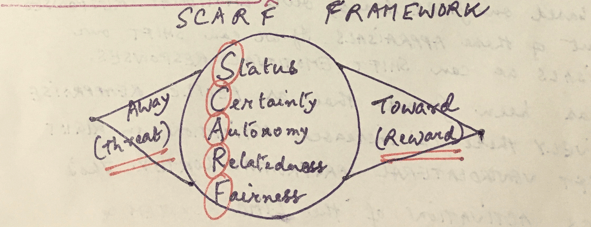 SCARF FRAMEWORK
Status
Certainty
Away
(threat)
Autonomy
Toward
(Reward)
Relatedness
Fairness